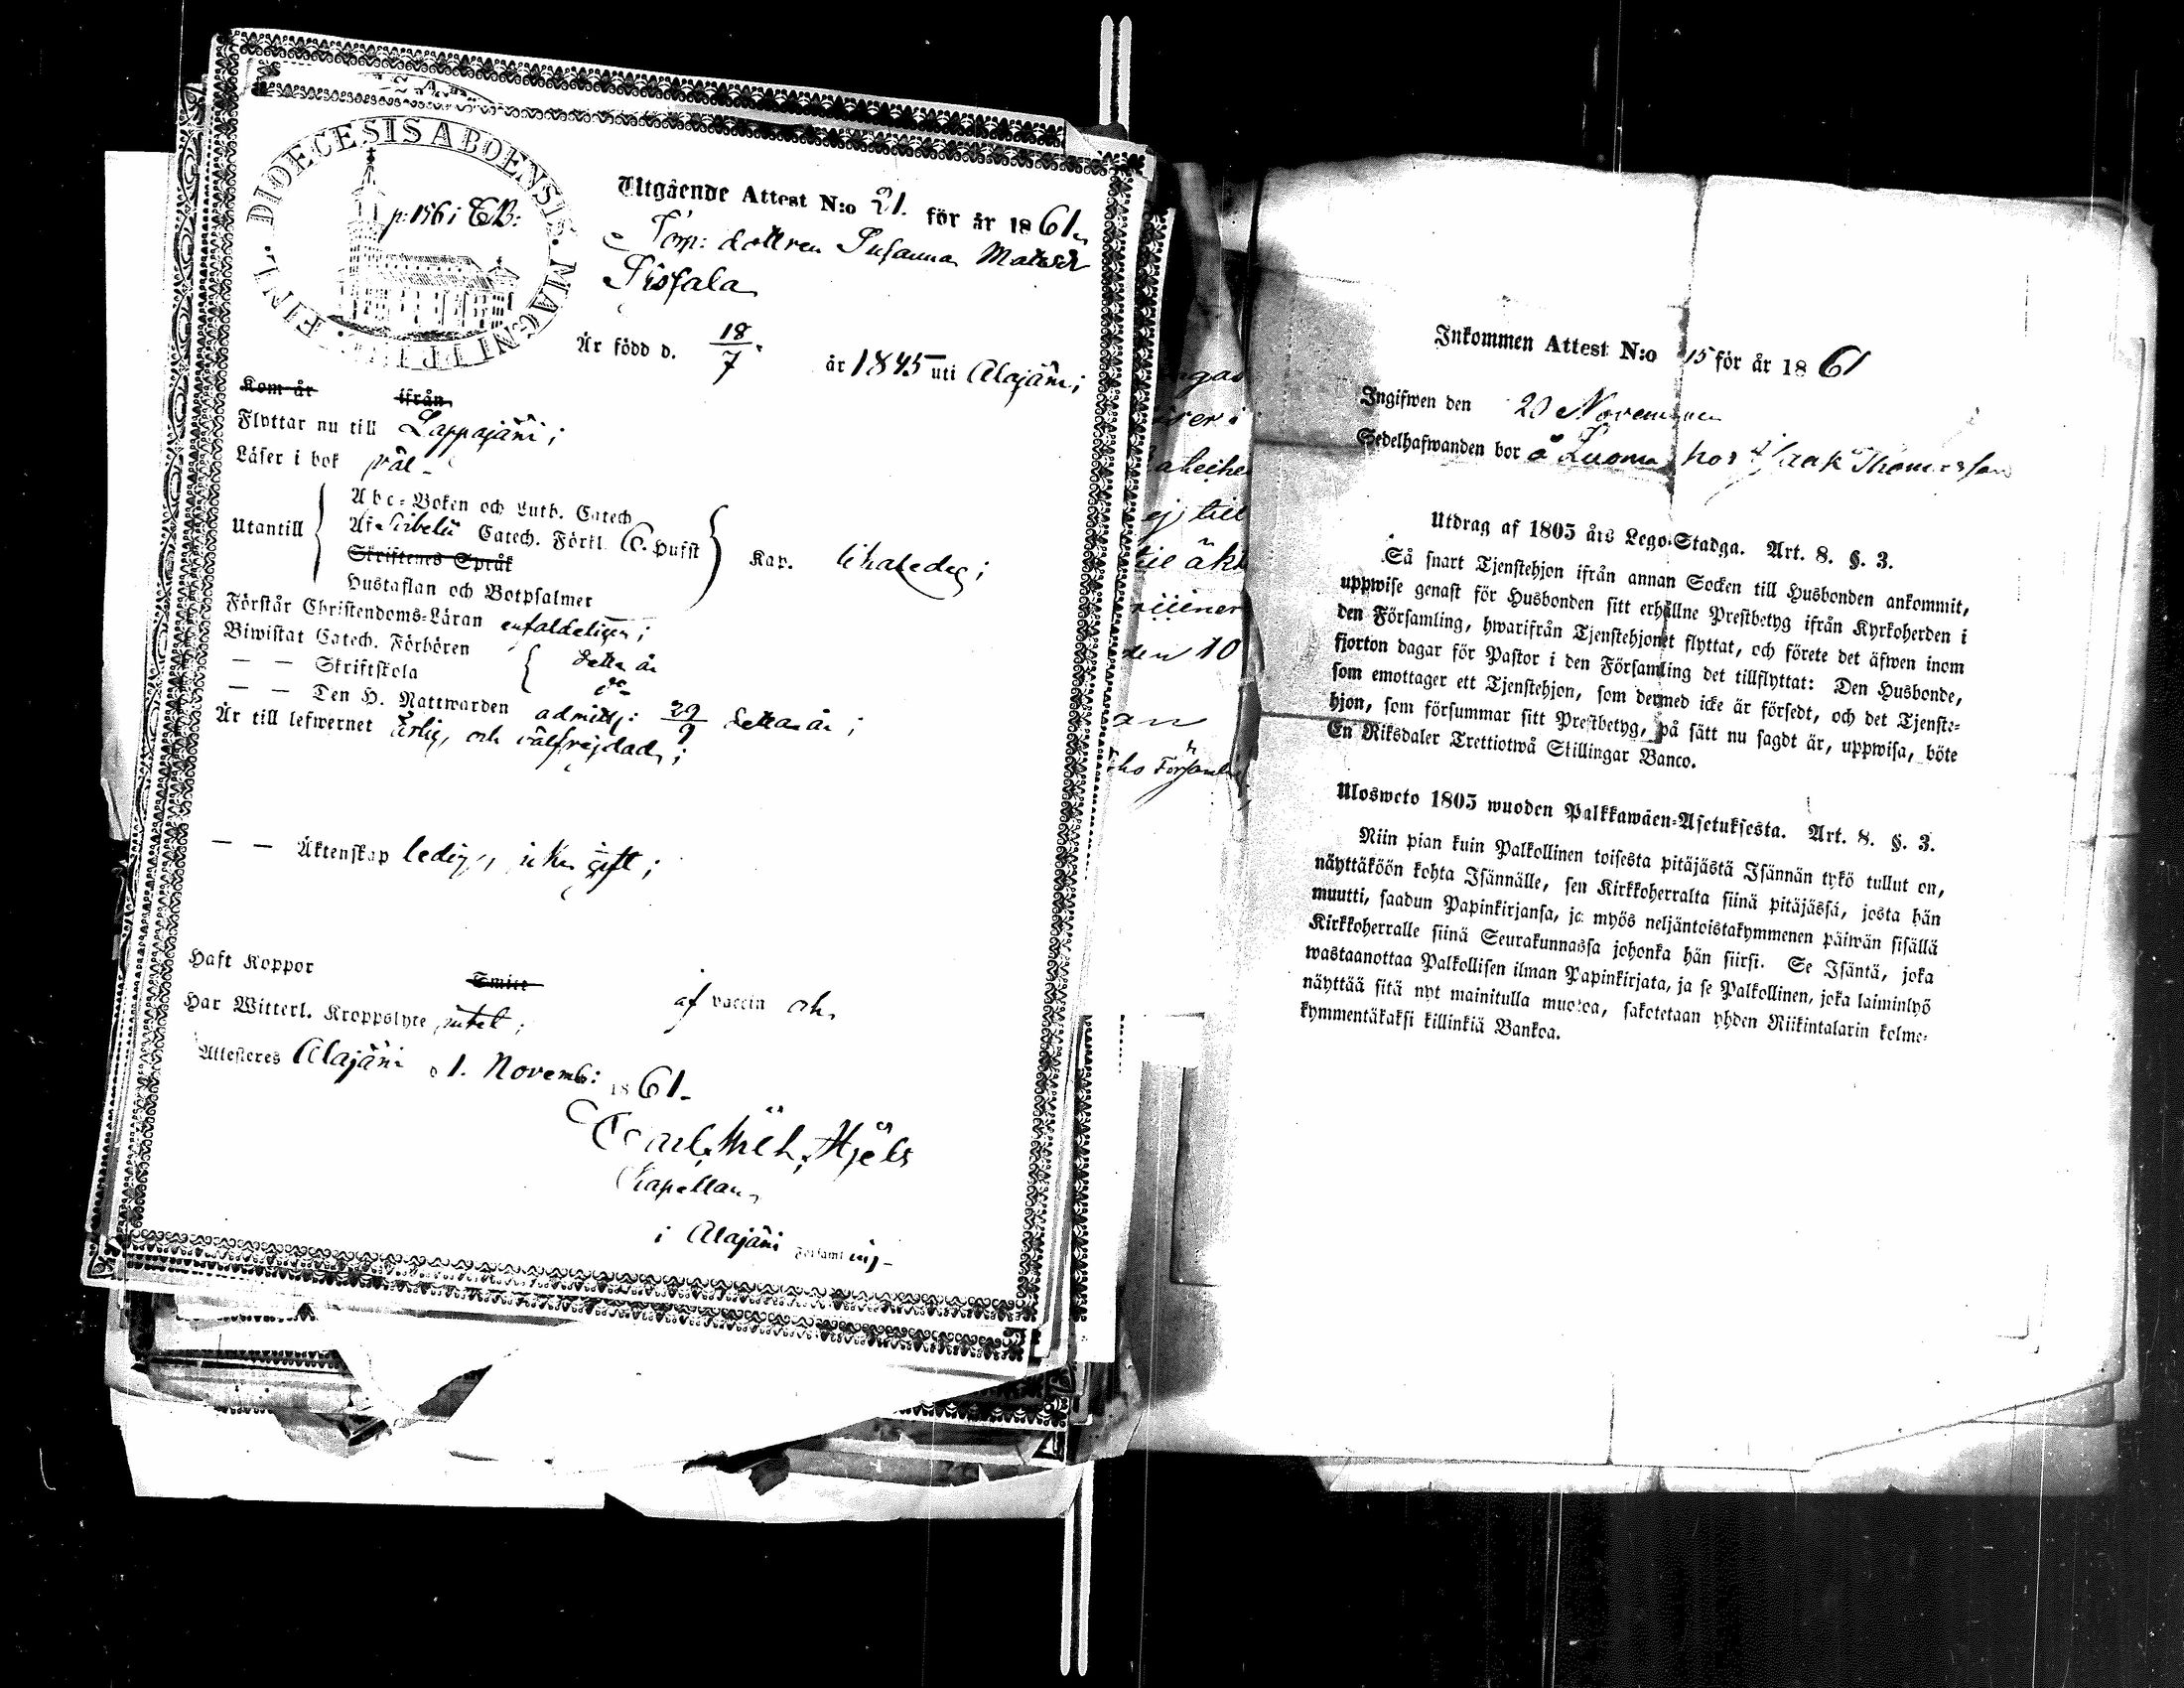 DIOECESIS ABOENSIS. MAGNI PR. FINL.
p: 156 i CB:
Utgående Attest N:o 21. för år 1861.
Torp: dottren Susanna Matsdr
Är född d. 18/7. år 1845 uti Alajärvi;
Kom år ifrån
Flyttar nu till Lappajärvi;
Läser i bok väl
Utantill
Abc-Boken och Luth. Catech
Af Catech. Förkl. Kap.
Skriftenes Språk
Hustaflan och Botpsalmer
Förstår Christendoms-Läran enfaldeligen;
Biwistat Catech. Förhören detta år
— — Skriftskola do
— — Den H. Nattwarden admitt: 29/9 detta år;
Är till lefwernet ärlig, och välfrejdad;
— — Äktenskap ledig, icke gift;
Haft Koppor Smitt af vaccin och
Har Witterl. Kroppslyte intet;
Attesteres Alajärvi d 1. Novemb: 1861.
Carl Wilh.
Kapellan
i Alajärvi Församling
till
den 10
Inkommen Attest N:o 15 för år 1861
Ingifwen den 20 November
Sedelhafwanden bor å Luoma hos Isaak Thomasson
Utdrag af 1805 års Lego-Stadga. Art. 8. §. 3.
Så snart Tjenstehjon ifrån annan Socken till Husbonden ankommit,
uppwise genast för Husbonden sitt erhållne Prestbetyg ifrån Kyrkoherden i
den Församling, hwarifrån Tjenstehjonet flyttat, och förete det äfwen inom
fjorton dagar för Pastor i den Församling det tillflyttat: Den Husbonde,
som emottager ett Tjenstehjon, som dermed icke är försedt, och det Tjenste-
hjon, som försummar sitt Prestbetyg, på sätt nu sagdt är, uppwisa, böte
En Riksdaler Trettiotwå Skillingar Banco.
Ulosweto 1805 wuoden Palkkawäen-Asetuksesta. Art. 8. §. 3.
Niin pian kuin Palkollinen toisesta pitäjästä Isännän tykö tullut on,
näyttäköön kohta Isännälle, sen Kirkkoherralta siinä pitäjässä, josta hän
muutti, saadun Papinkirjansa, ja myös neljäntoistakymmenen päiwän sisällä
Kirkkoherralle siinä Seurakunnassa johonka hän siirsi. Se Isäntä, joka
wastaanottaa Palkollisen ilman Papinkirjata, ja se Palkollinen, joka laiminlyö
näyttää sitä nyt mainitulla muotoa, sakotetaan yhden Riikintalarin kolme-
kymmentäkaksi killinkiä Bankoa.